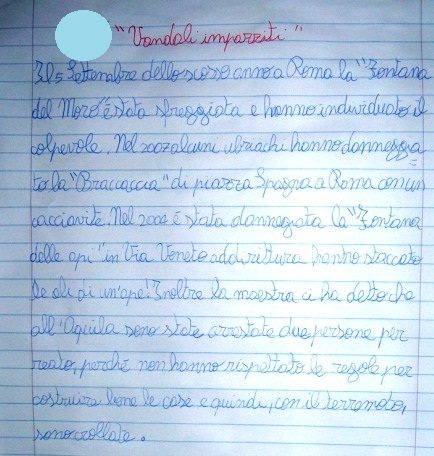 "Vandali impazziti"
Il 5 Settembre dello scorso anno a Roma la "Fontana
del Moro" é stata sfreggiata e hanno individuato il
colpevole. Nel 2007 alcuni ubriachi hanno danneggia
to la "Braccaccia" di piazza Spagna a Roma con un
cacciavite. Nel 2004 é stata dannegiata la "Fontana
delle api" in Via Veneto addirittura hanno staccato
le ali di un'ape! Inoltre la maestra ci ha detto che
all'Aquila sono state arrestate due persone per
reato, perché non hanno rispettato le regole per
costruire bene le case e quindi, con il terremoto,
sono crollate.